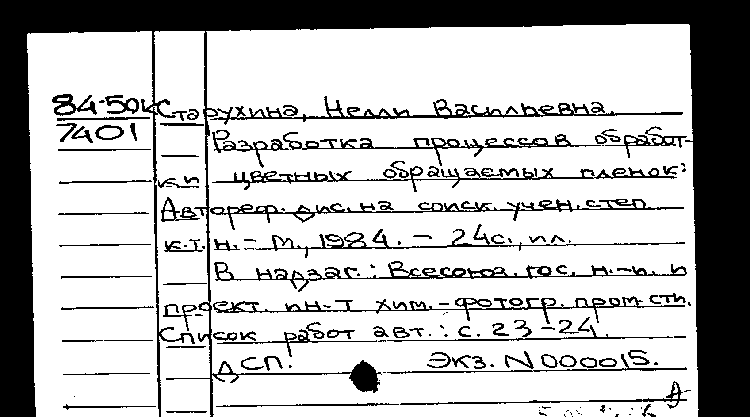 84-50к Старухина, Нелли Васильевна.
7401
Разработка процессов обработ-
ки цветных обращаемых пленок:
Автореф. дис. на соиск. учен. степ.
к.т.н. - М., 1984. - 24с., ил.
В надзаг.: Всесоюз. гос. н.-и. и
проект. ин-т хим.-фотогр. пром-сти.
Список работ авт.: с. 23-24.
ДСП! Экз. N000015.